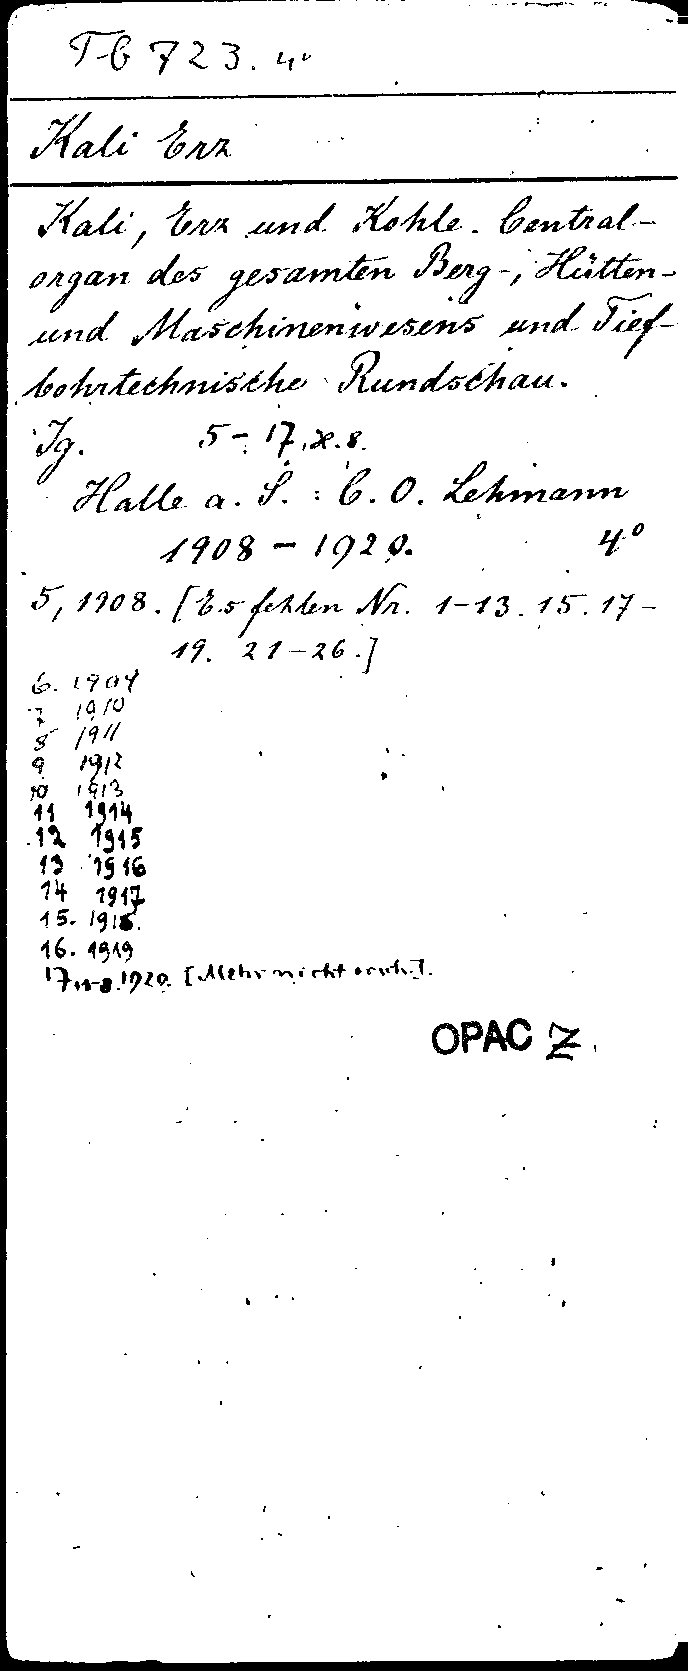 Tb 723. 4°
Kali Erz
Kali, Erz und Kohle. Central-
organ des gesamten Berg-, Hütten-
und Maschinenwesens und Tief-
bohrtechnische Rundschau.
Jg. 5 - 17, H. 8.
Halle a. S. : C. O. Lehmann
1908 - 1920. 4°
5, 1908. [Es fehlen Nr. 1-13. 15. 17-
19. 21-26.]
6. 1909
7 1910
8 1911
9 1912
10 1913
11 1914
12 1915
13 1916
14 1917
15. 1918.
16. 1919
17 1-8. 1920. [Mehr nicht ersch.].
OPAC Z